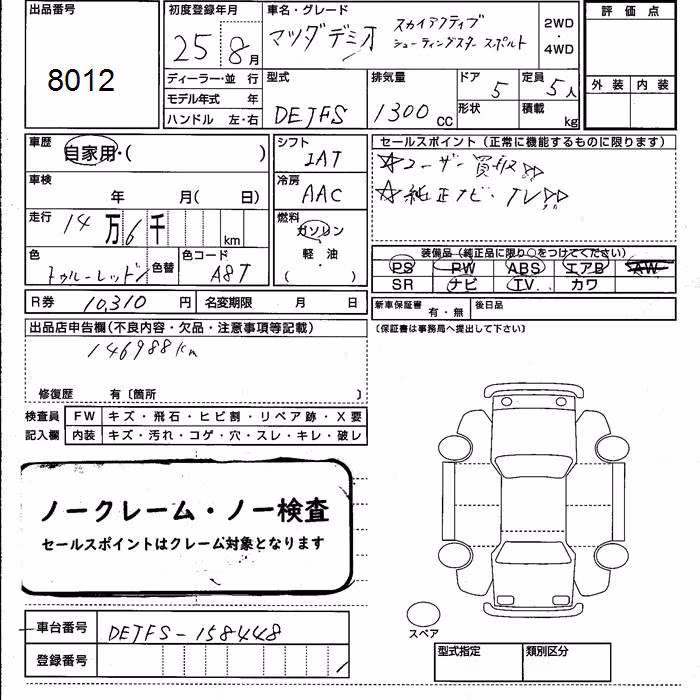 出品番号 8012
初度登録年月 25 8月
車名・グレード マツダデミオ スカイアクティブ
シューティングスター スポルト
2WD・4WD
評価点
外装 内装
ディーラー・並 行
モデル年式 年
ハンドル 左・右
型式 DEJFS
排気量 1300 cc
ドア 5
形状
定員 5人
積載 kg
車歴 自家用・( )
シフト IAT
車検 年 月( 日)
冷房 AAC
走行 14万6千 km
燃料 ガソリン
軽・油
( )
色 トゥルーレッド
色替
色コード A8T
R券 10,310 円
名変期限 月 日
セールスポイント (正常に機能するものに限ります)
☆ユーザー買取
☆純正ナビ・TV
装備品 (純正品に限り○をつけてください)
PS PW ABS エアB AW
SR ナビ TV カワ
新車保証書 有・無 後日品
〔保証書は事務局へ提出して下さい〕
出品店申告欄(不良内容・欠品・注意事項等記載)
146988km
修復歴 有〔箇所 〕
検査員記入欄
FW キズ・飛石・ヒビ割・リペア跡・X要
内装 キズ・汚れ・コゲ・穴・スレ・キレ・破レ
ノークレーム・ノー検査
セールスポイントはクレーム対象となります
車台番号 DEJFS-158448
登録番号
スペア
型式指定 類別区分